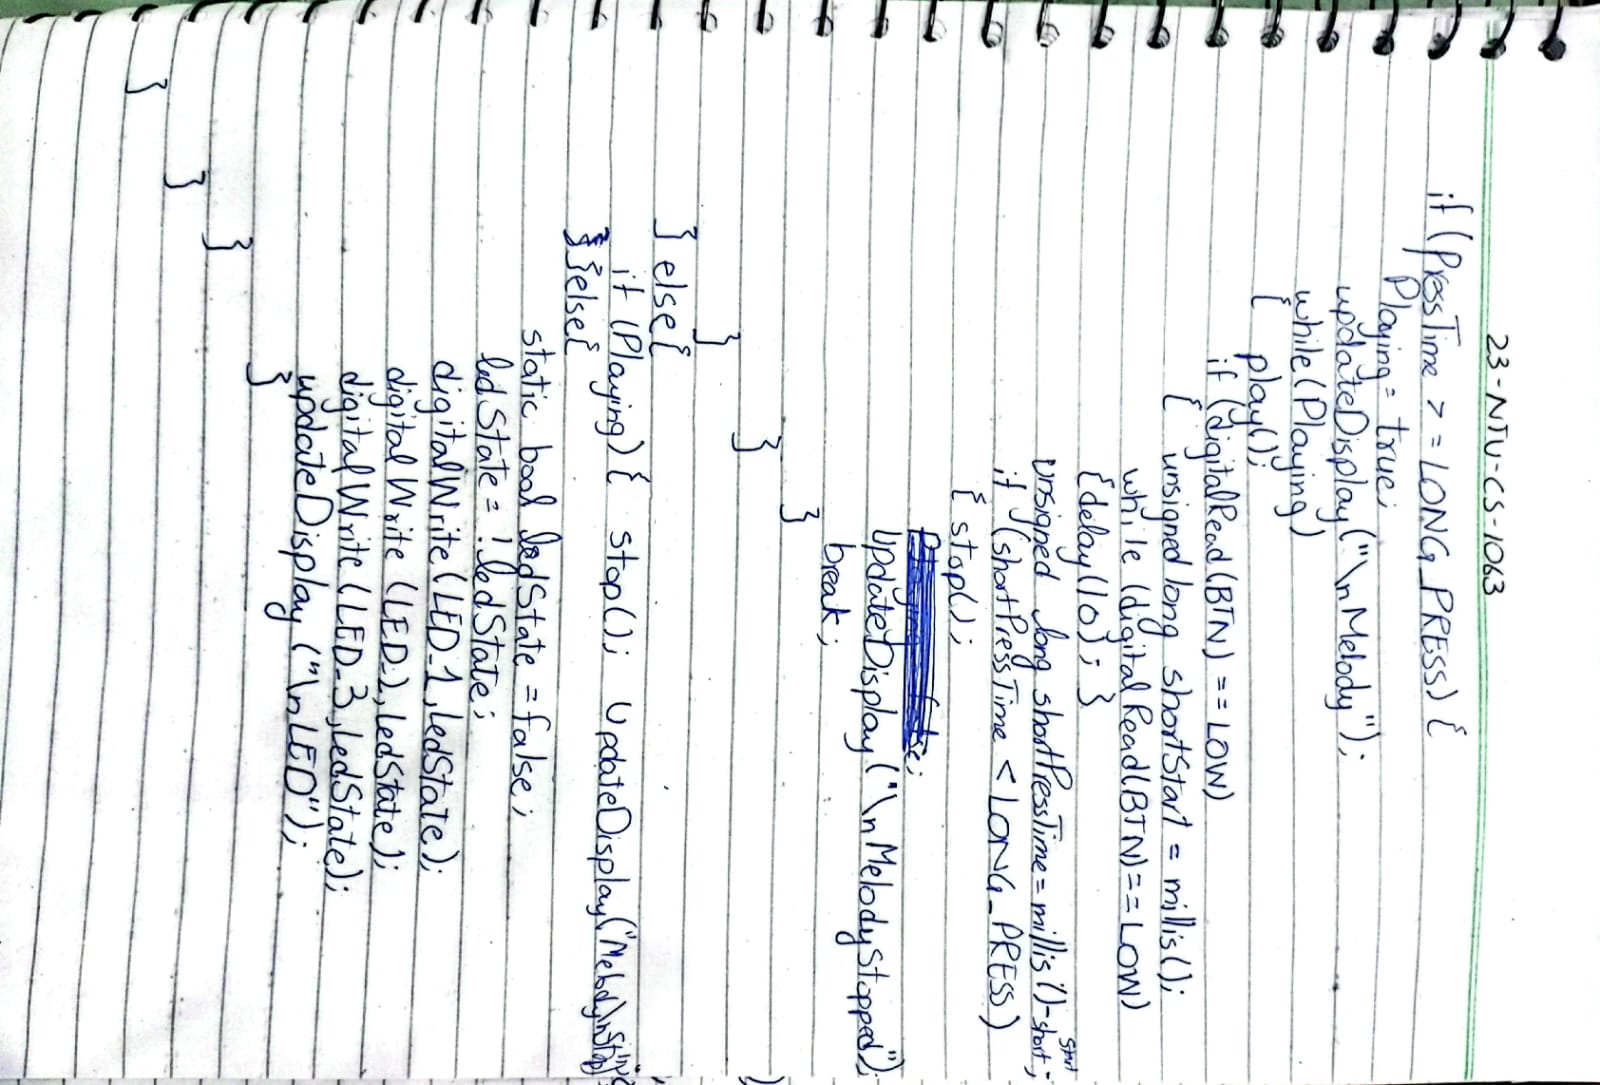 23-NTU-CS-1063
if (PressTime >= LONG_PRESS) {
Playing = true;
updateDisplay ("\nMelody");
while (Playing)
{ play();
if (digitalRead(BTN) == LOW)
{ unsigned long shortStart = millis();
while (digitalRead(BTN) == LOW)
{delay(10); }
unsigned long shortPressTime = millis() - shortStart;
if (shortPressTime < LONG_PRESS)
{ stop();
UpdateDisplay ("\nMelodyStopped");
break;
}
}
}
} else {
if (Playing) { stop(); UpdateDisplay("Melody\nStop
} else {
static bool ledState = false;
ledState = !ledState;
digitalWrite (LED_1, ledState);
digitalWrite (LED_2, ledState);
digitalWrite (LED_3, ledState);
updateDisplay ("\nLED");
}
}
}
}